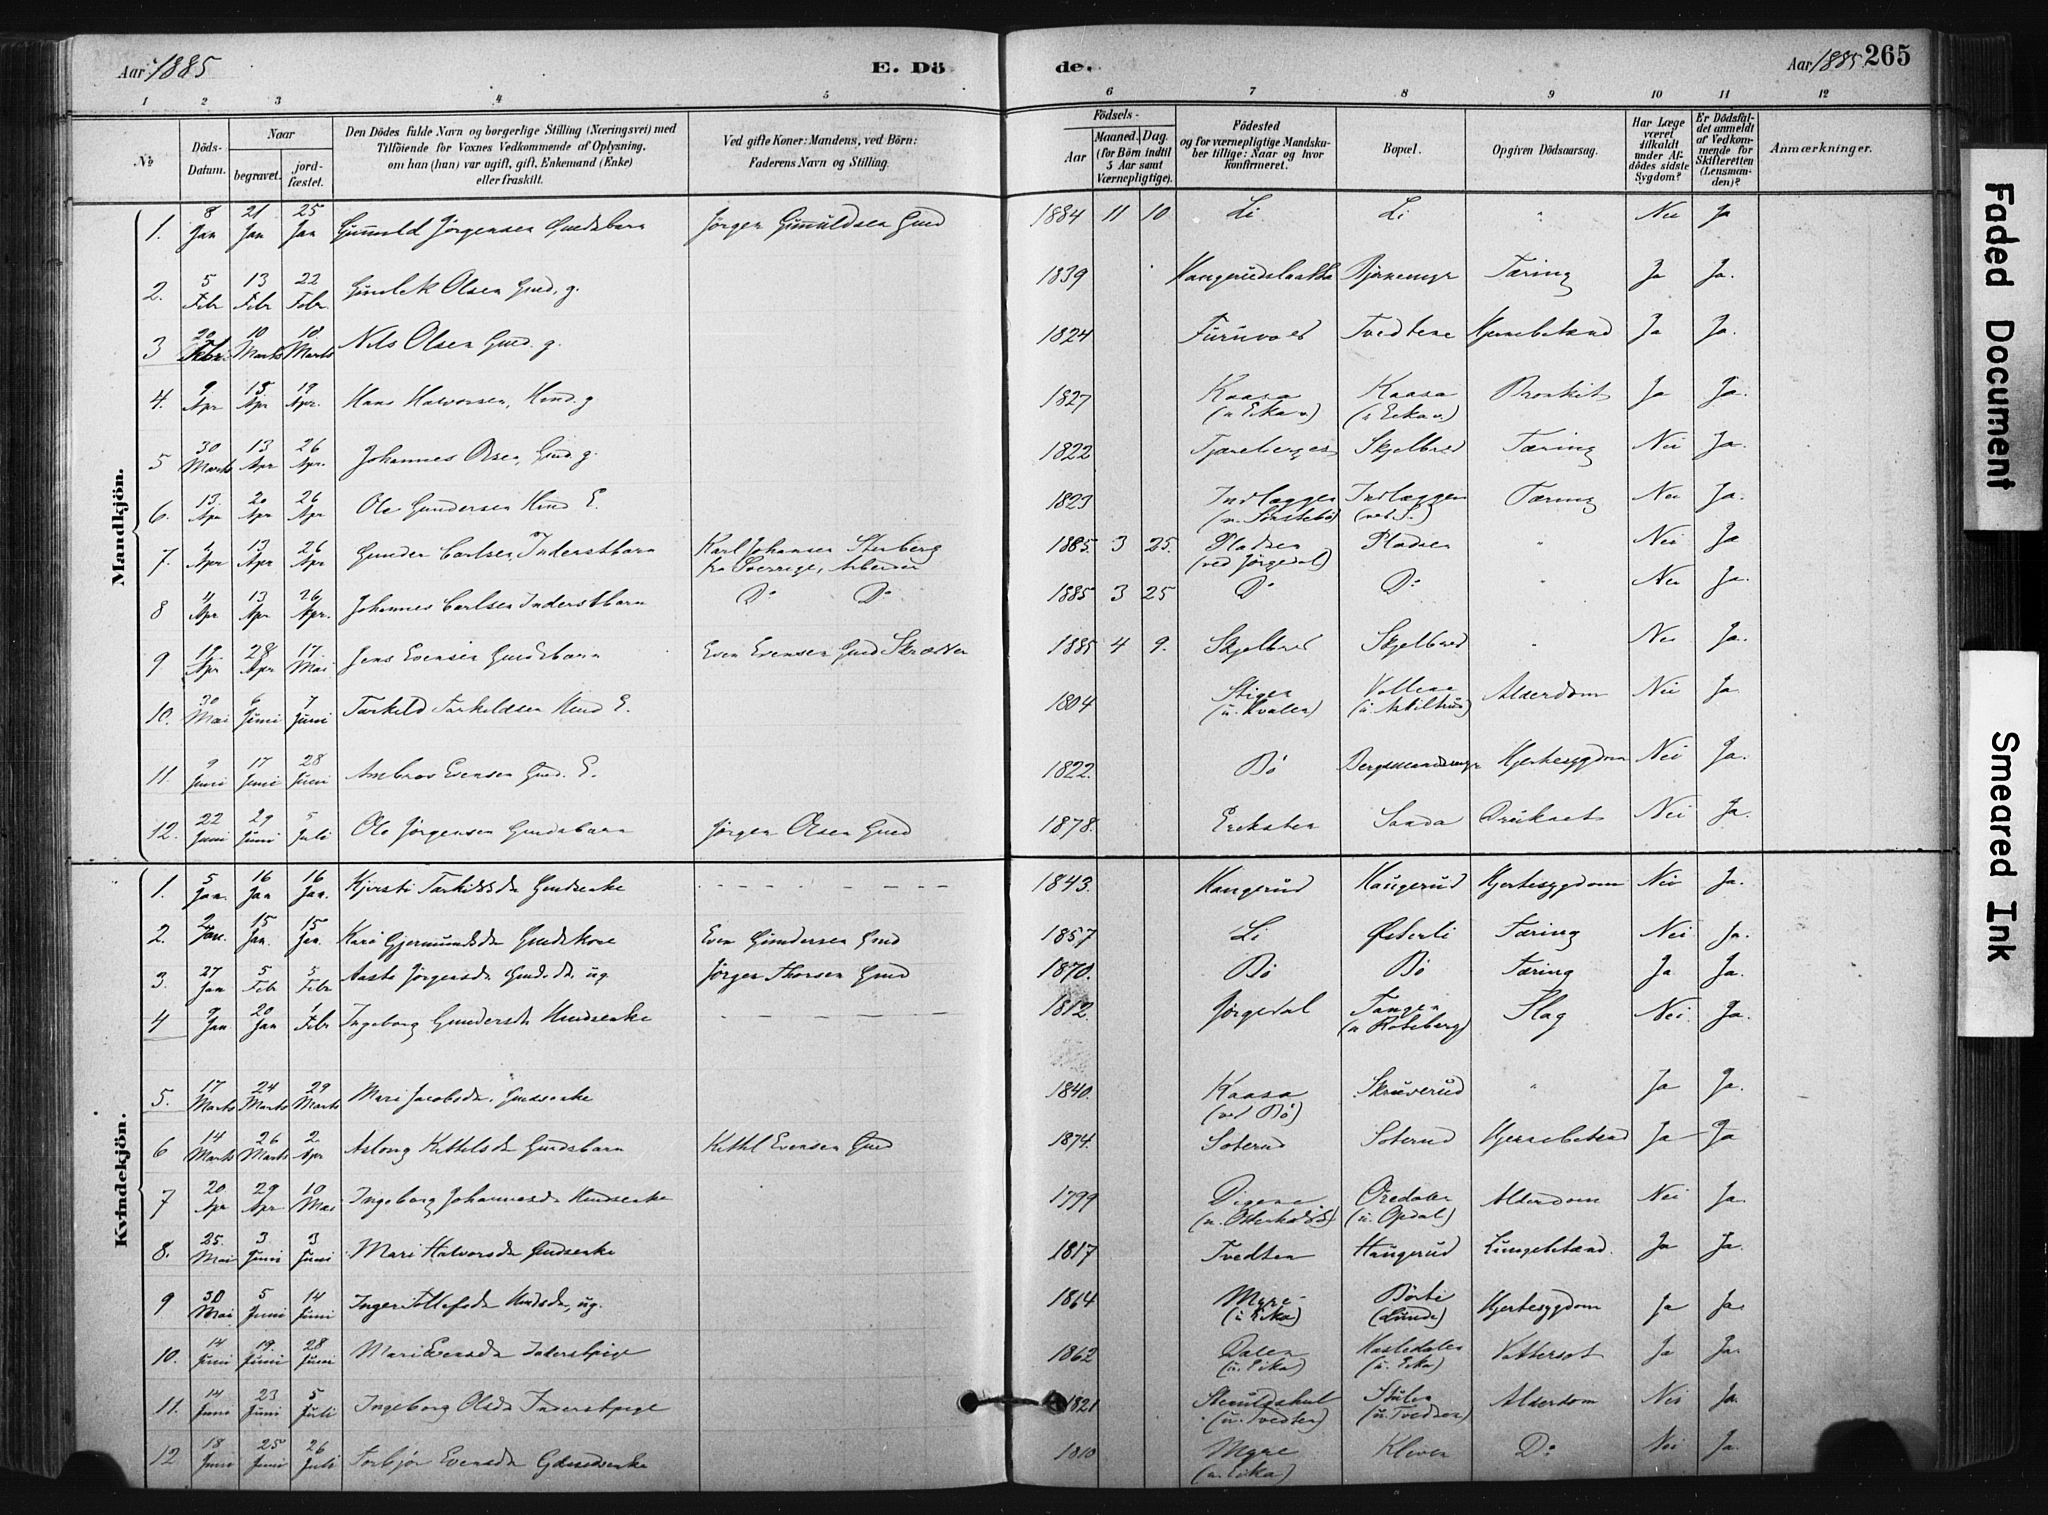 Aar 1885 E. Dö de. Aar 1885 265
1 2 3 4 5 6 7 8 9 10 11 12
No
Döds-Datum.
Naar
begravet.
jord-fæstet.
Den Dödes fulde Navn og borgerlige Stilling (Næringsvei) med
Tilföiende for Voxnes Vedkommende af Oplysning,
om han (hun) var ugift, gift, Enkemand (Enke)
eller fraskilt.
Ved gifte Koner: Mandens, ved Börn:
Faderens Navn og Stilling.
Födsels-
Aar
Maaned. Dag.
(for Börn indtil
5 Aar samt
Værnepligtige).
Födested
og for værnepligtige Mandska-
ber tillige: Naar og hvor
konfirmeret.
Bopæl.
Opgiven Dödsaarsag.
Har Læge
været
tilkaldt
under Af-
dödes sidste
Sygdom?
Er Dödsfal-
det anmeldt
af Vedkom-
mende for
Skifteretten
(Lensman-
den)?
Anmærkninger.
Mandkjön.
1. 8 Jan 21 Jan 25 Jan Gunuld Jörgensen Gmdsbarn Jörgen Gunuldsen Gmd 1884 11 10 Li Li " Nei Ja
2. 5 Febr 13 Febr 22 Febr. Gunlek Olsen Gmd. g. 1839 Bjørnemyr Tæring Ja Ja.
3 20 Febr. 10 Marts 10 Marts Nils Olsen Gmd. g. 1824 Furuvald Tvedtene Hjernebetænd Ja Ja.
4. 9 Apr 15 Apr 19 Apr. Hans Halvorsen, Hmd. g 1827 Kaasa Kaasa Bronkit Ja Ja.
(u Eika) (u Eika)
5 30 Marts 13 Apr 26 Apr. Johannes Olsen, Gmd. g. 1822 Skjelbred Tæring Nei Ja.
6. 13. Apr 20 Apr 26 Apr Ole Gundersen Hmd E. 1823 Indlæggen Indlæggen Tæring Nei Ja.
7. 4 Apr 13 Apr 26 Apr Gunder Carlsen, Inderstbarn Karl Johansen Stenberg 1885. 3 25. Pladsen Pladsen " Nei Ja
fra Sverrige, Arbeider (ved Jörgedal)
8 11 Apr 13 Apr 26 Apr. Johannes Carlsen Inderstbarn Do Do 1885 3 25 Do Do " Nei Ja.
9 19 Apr 28 Apr 17. Mai Jens Evensen Gmdsbarn Even Evensen Gmd Skrædder 1885 4 9. Skjelbred Skjelbred " Nei Ja.
10. 30 Mai 6 Juni 7 Juni Tarkeld Tarkeldsen Hmd E. 1804 Stigen Vollene Alderdom Nei Ja.
(u. Kvalen)
11. 9 Juni 17 Juni 28 Juni Ambros Evensen Gmd. E. 1822. Bö Hjertesygdom Nei Ja.
12. 22 Juni 29 Juni 5 Juli Ole Jörgensen Gmdsbarn Jörgen Olsen Gmd 1878. Eriksten Sanda Druknet Nei Ja.
Kvindekjön.
1. 5 Jan. 16 Jan 16 Jan. Kjersti Tarkildsd Gmdsenke 1843. Haugerud Haugerud Hjertesygdom Nei Ja.
2. 2 Jan. 15 Jan. 15 Jan. Kari Gjermundsd Gmdskone Even Gundersen Gmd 1857 Li Østerli Tæring Nei Ja.
3. 27 Jan 5 Febr 5 Febr Aaste Jörgensd. Gmdsd. ug Jörgen Thorsen Gmd 1870. Bö Bö Tæring Ja Ja.
4 9 Jan 20 Jan 1 Febr Ingeborg Gundersd Hmdsenke 1812. Jörgedal Tangen Slag Nei Ja.
(u Roteberg)
5. 17 Marts 24 Marts 29 Marts Mari Jacobsd. Gmdsenke 1840. Kaasa Skruverud " Ja Ja.
(ved Bö)
6 14 Marts 26 Marts 2. Apr Aslaug Kittilsd Gmdsbarn Kittil Evensen Gmd 1874. Soterud Soterud Hjernebetænd Ja Ja
7 20 Apr 29 Apr 10 Mai Ingeborg Johannesd. Hmdsenke 1799 Digene Øredalen Alderdom Nei Ja.
(u. Opdal)
8. 25. Mai 3. Juni 3 Juni Mari Halvorsd Gmdsenke 1817 Tvedten Haugerud Lungebetænd. Ja Ja.
9 30 Mai 5 Juni 14 Juni Inger Tollefsd Hmdsd, ug. 1864 Myre Børte Hjertesygdom Ja Ja.
(u Eika) (Lunde)
10. 14 Juni 19. Juni 28 Juni Mari Evensd Inderstpige 1862 Dalen Hasledalen Vattersot Ja Ja.
(u. Eika) (u. Eika)
11. 14 Juni 23 Juni 5 Juli Ingeborg Olsd Inderstpige 1821 Stulen Alderdom Nei Ja.
(u. Tvedten) (u. Tvedten)
12 18 Juni 25 Juni 26 Juli Torbjør Evensd Gmdsenke 1810 Myre Kleven Do Nei Ja.
(u. Eika)
Faded Document
Smeared Ink